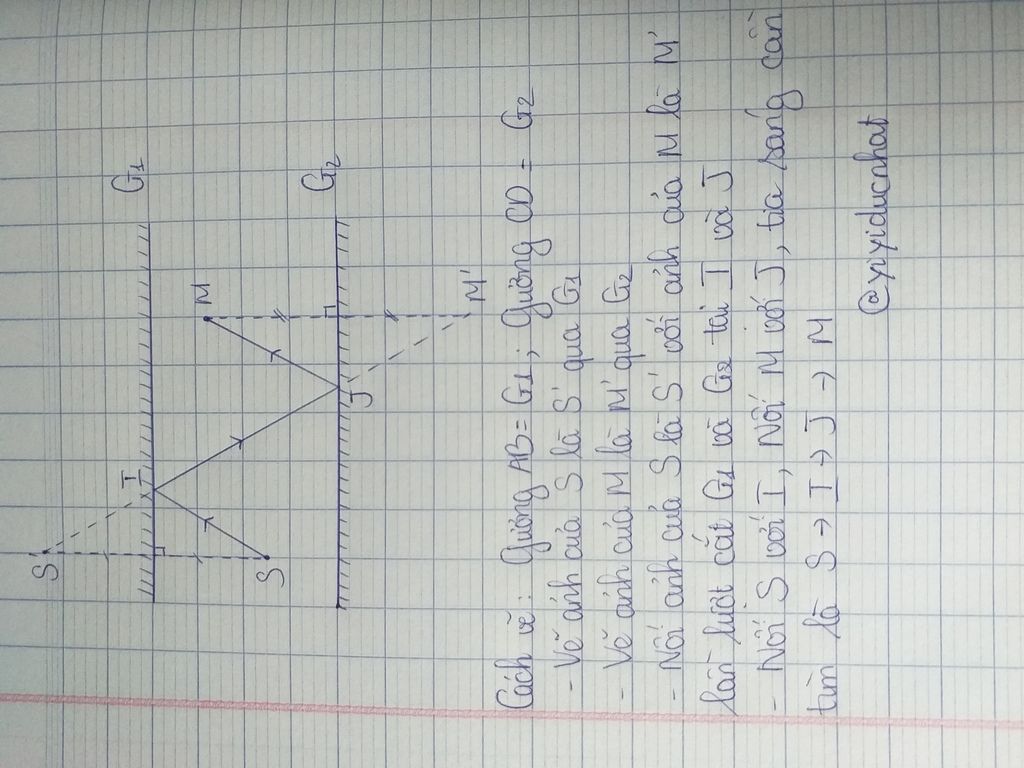 G1
G2
S'
I
M
S
J
M'
Cách vẽ: Gương AB = G1; gương CD = G2
- Vẽ ảnh của S là S' qua G1
- Vẽ ảnh của M là M' qua G2
- Nối ảnh của S là S' với ảnh của M là M'
lần lượt cắt G1 và G2 tại I và J
- Nối S với I, Nối M với J, tia sáng cần
tìm là S → I → J → M
@yiyiducnhat